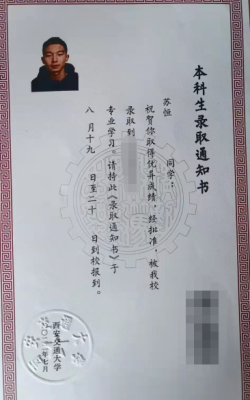 本科生录取通知书
苏恒 同学：
祝贺你取得优异成绩，经批准，被我校
录取到
专业学习。请持此《录取通知书》于
八月十九 日至二十 日到校报到。
西安交通大学
二〇二一年七月